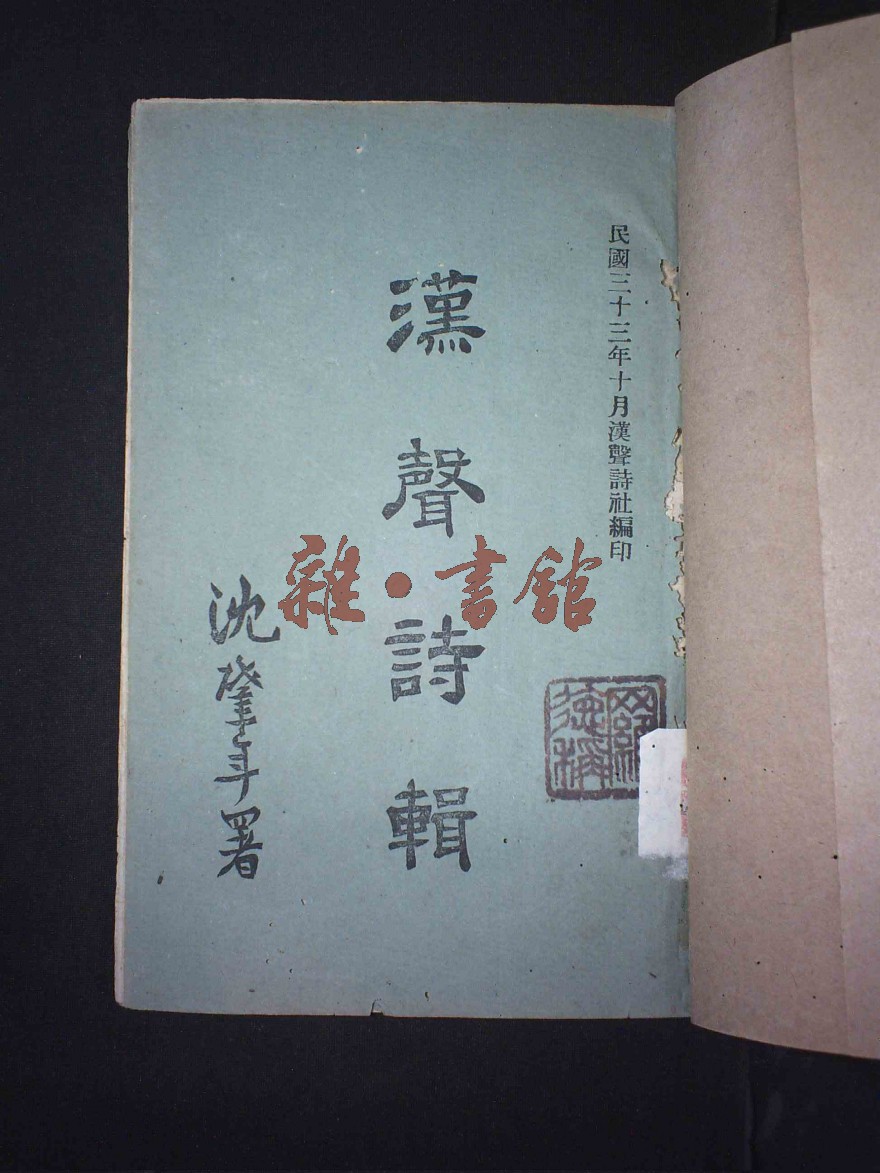 民國三十三年十月漢聲詩社編印
漢聲詩輯
沈肇年署
雜·書館